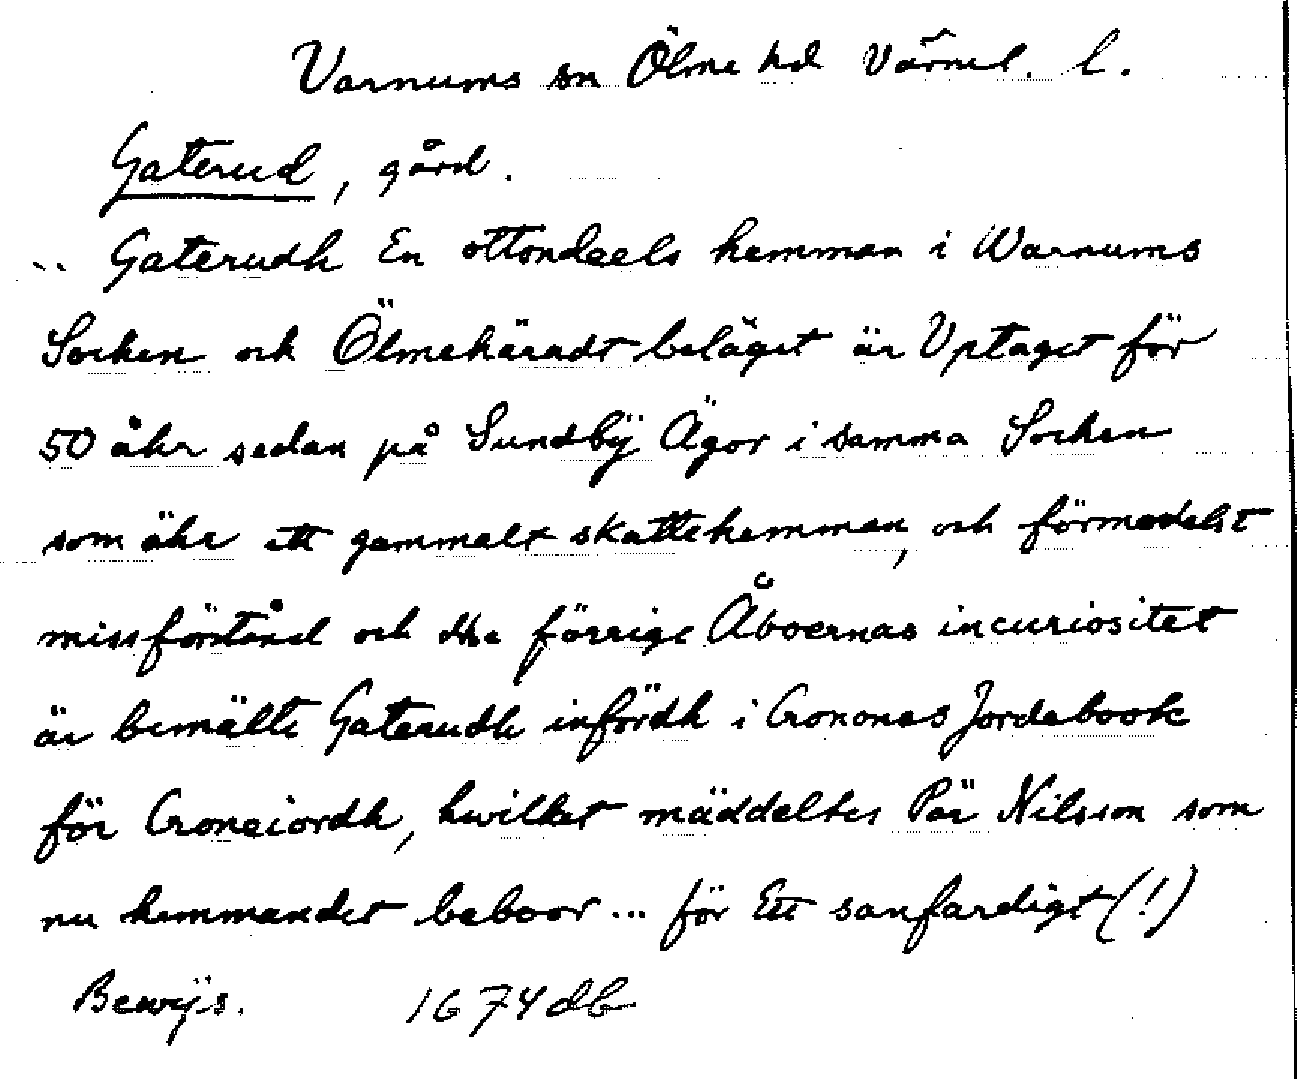 Varnums sn Ölme hd Värml. l.
Gaterud, gård.
.. Gaterudh En ottondeels hemman i Warnums
Socken och Ölmehäradt beläget är Uptaget för
50 åhr sedan på Sundbÿ Ägor i samma Socken
som ähr ett gammalt skattehemman, och förmedelst
missförstånd och the förrige Åboernas incuriositet
är bemälte Gaterudh infördh i Crononas Jordebook
för Croneiordh, hwilket mäddeltes Pär Nilsson som
nu hemmandet beboor... för Ett sanfardigt (!)
Bewÿs. 1674 db